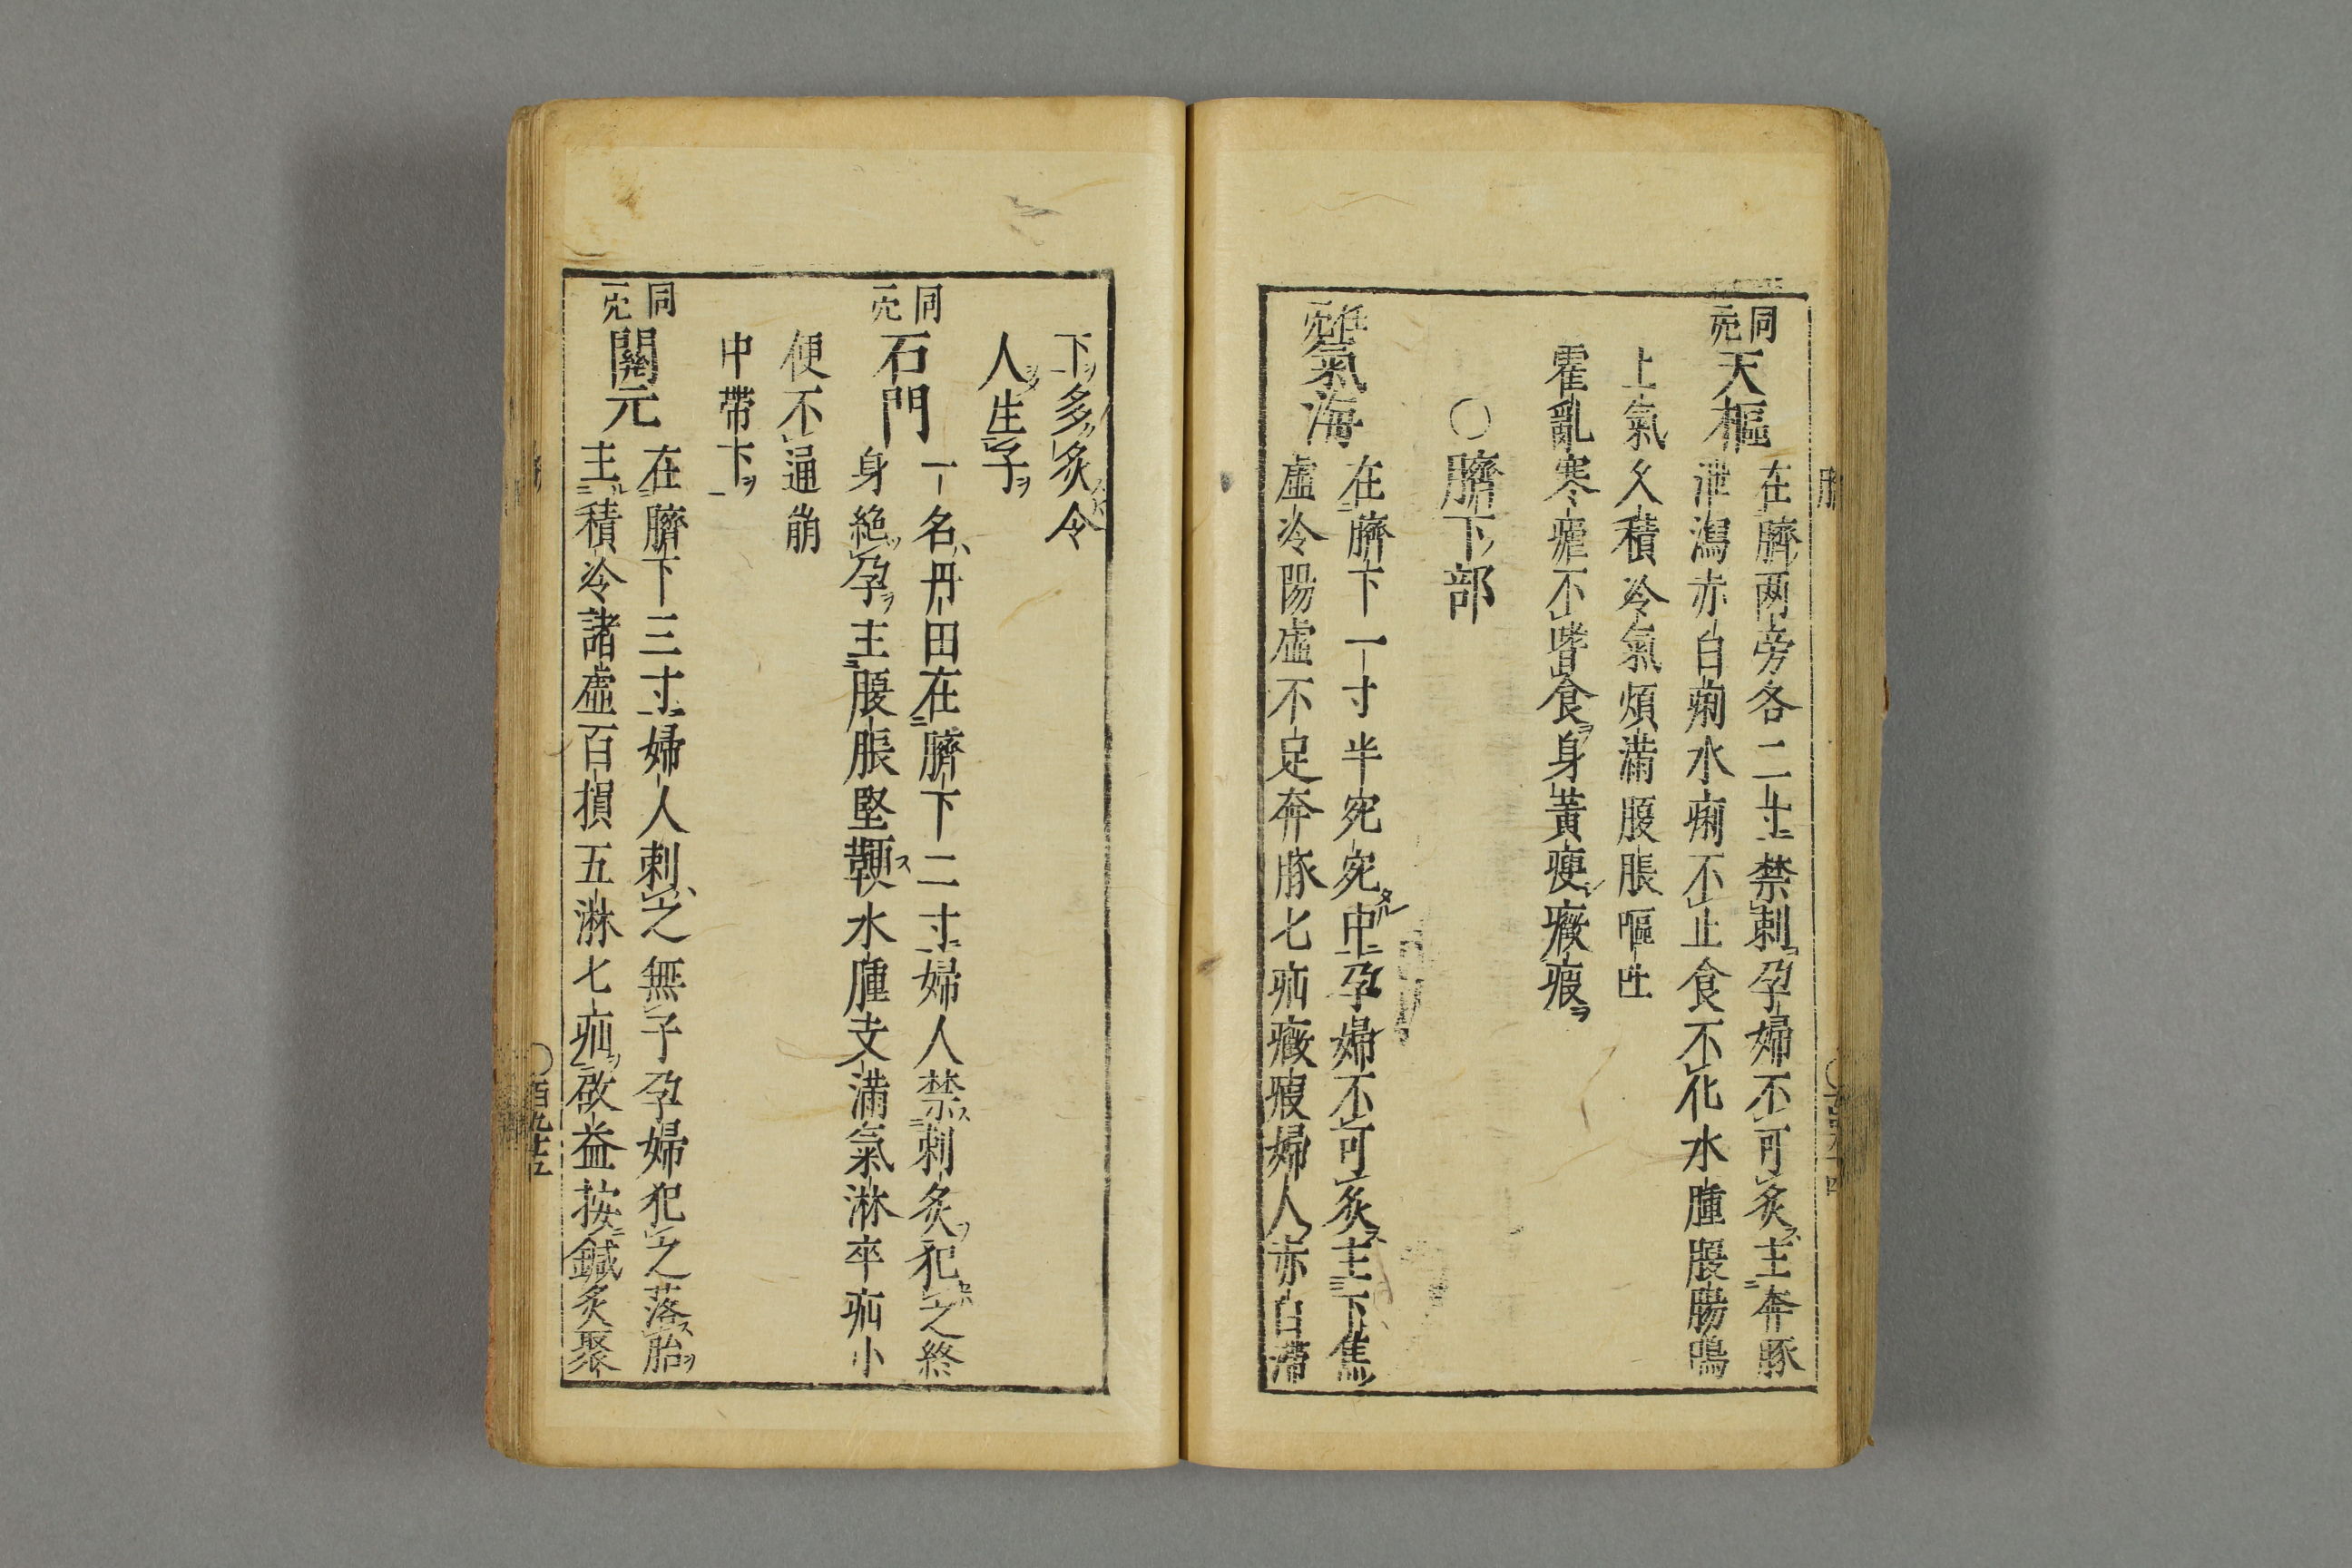 同二穴天樞在臍兩旁各二寸禁刺孕婦不可灸主奔豚
泄瀉赤白痢水痢不止食不化水腫脹腸鳴
上氣久積冷氣煩滿腹脹嘔吐
霍亂寒瘧不嗜食身黃瘦癥瘕
〇臍下部
任一穴氣海在臍下一寸半宛宛中孕婦不可灸主下焦
虛冷陽虛不足奔豚七疝癥瘕婦人赤白滯
下多灸令
人生子
同一穴石門一名丹田在臍下二寸婦人禁刺灸犯之終
身絶孕主腹脹堅鞕水腫支滿氣淋卒疝小
便不通崩
中帶下
同一穴關元在臍下三寸婦人刺之無子孕婦犯之落胎
主積冷諸虛百損五淋七疝啟益按鍼灸聚